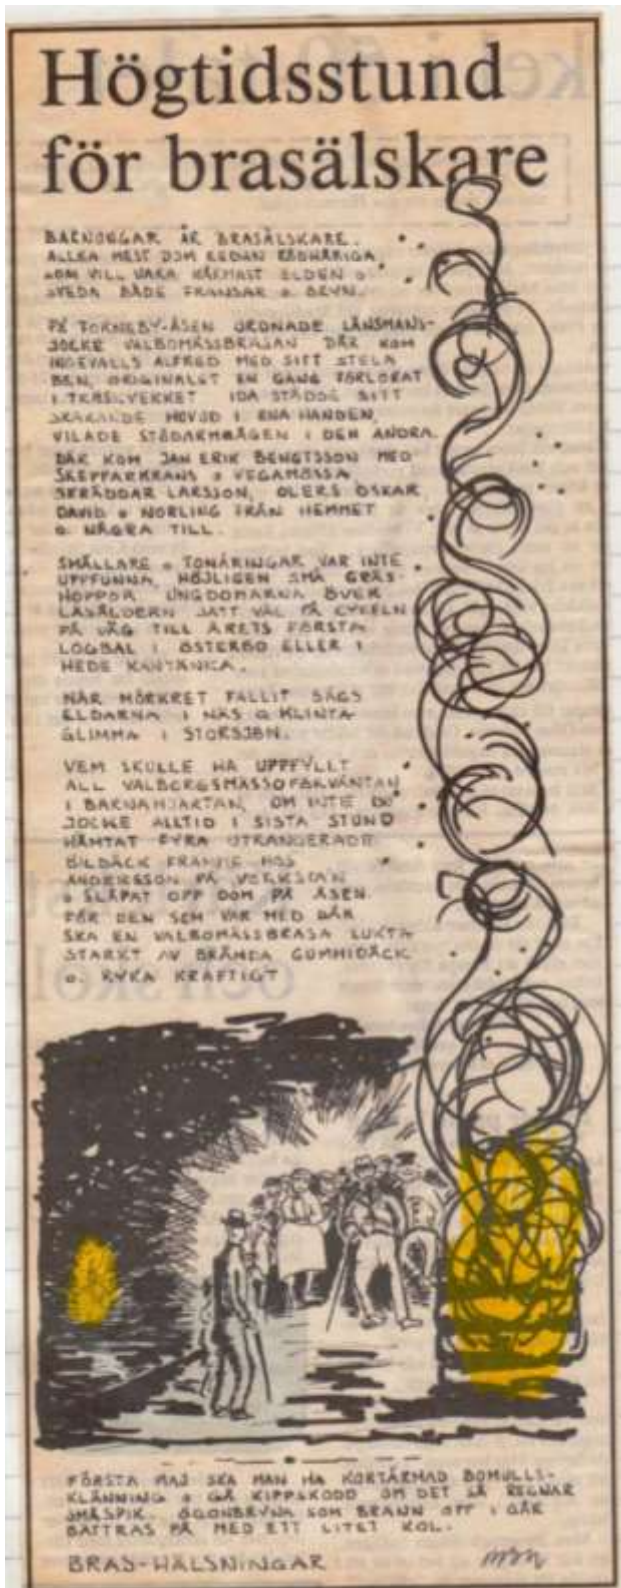 Högtidsstund
för brasälskare
BARNUNGAR ÄR BRASÄLSKARE.
ALLRA MEST DOM REDAN RÖDHÅRIGA,
SOM VILL VARA NÄRMAST ELDEN O
SVEDA BÅDE FRANSAR O BRYN.
PÅ TORNEBY-ÅSEN ORDNADE LÄNSMANS-
JOCKE VALBOMÄSSBRASAN DÄR KOM
INGEVALLS ALFRED MED SITT STELA
BEN, ORIGINALET EN GÅNG FÖRLORAT
I TRÖSKVERKET IDA STÖDDE SITT
SKAKANDE HUVUD I ENA HANDEN,
VILADE STÖDARMBÅGEN I DEN ANDRA.
DÄR KOM JAN ERIK BENGTSSON MED
SKEPPARKRANS O VEGAMÖSSA
SKRÄDDAR LARSSON, OLERS OSKAR,
DAVID O NORLING FRÅN HEMMET
O. NÅGRA TILL.
SMÄLLARE O TONÅRINGAR VAR INTE
UPPFUNNA, HÖJLIGEN SMÅ GRÄS-
HOPPOR UNGDOMARNA ÖVER
LÄSÅLDERN SATT VÄL PÅ CYKELN
PÅ VÄG TILL ÅRETS FÖRSTA
LOGBAL I ÖSTERBO ELLER I
HEDE KANTÄNKA.
NÄR MÖRKRET FALLIT SÅGS
ELDARNA I NÄS O KLINTA
GLIMMA I STORSJÖN.
VEM SKULLE HA UPPFYLLT
ALL VALBORGSMÄSSOFÖRVÄNTAN
I BARNAHJÄRTAN, OM INTE DU
JOCKE ALLTID I SISTA STUND
HÄMTAT FYRA UTRANGERADE
BILDÄCK FRAMME HOS
ANDERSSON PÅ VERKSTAN
O SLÄPAT OPP DOM PÅ ÅSEN.
FÖR DEN SOM VAR MED DÄR
SKA EN VALBOMÄSSBRASA LUKTA
STARKT AV BRÄNDA GUMMIDÄCK
O. RYKA KRAFTIGT
FÖRSTA MAJ SKA MAN HA KORTÄRMAD BOMULLS-
KLÄNNING O GÅ KIPPSKODD OM DET SÅ REGNAR
SMÅSPIK. ÖGONBRYNA SOM BRANN OPP I GÅR
BÄTTRAS PÅ MED ETT LITET KOL.
BRAS-HÄLSNINGAR